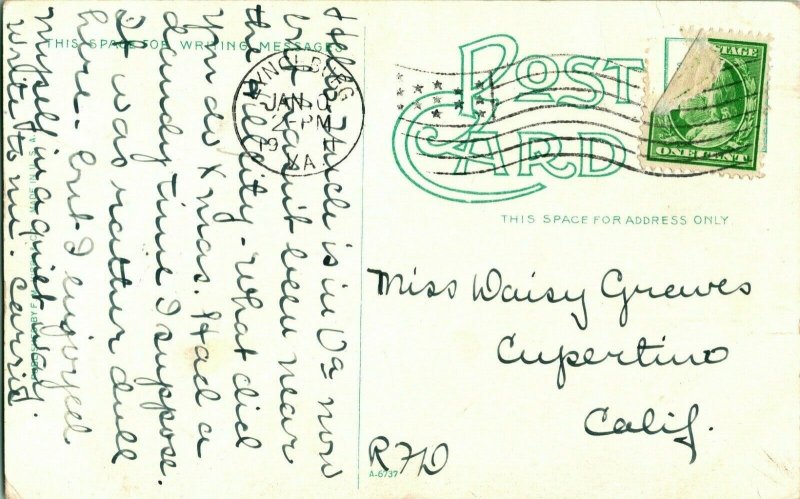 THIS SPACE FOR WRITING MESSAGES
Hello, Uncle is in Va now
but hasn't been near
the Hill City. What did
you do Xmas. Had a
dandy time I suppose.
It was rather dull
here. but I enjoyed
myself in a quiet way.
write to me. Carrie.
POST
CARD
LYNCHBURG
JAN
PM
VA
POSTAGE
ONE CENT
THIS SPACE FOR ADDRESS ONLY
Miss Daisy Greves
Cupertino
Calif.
RFD
A-6737